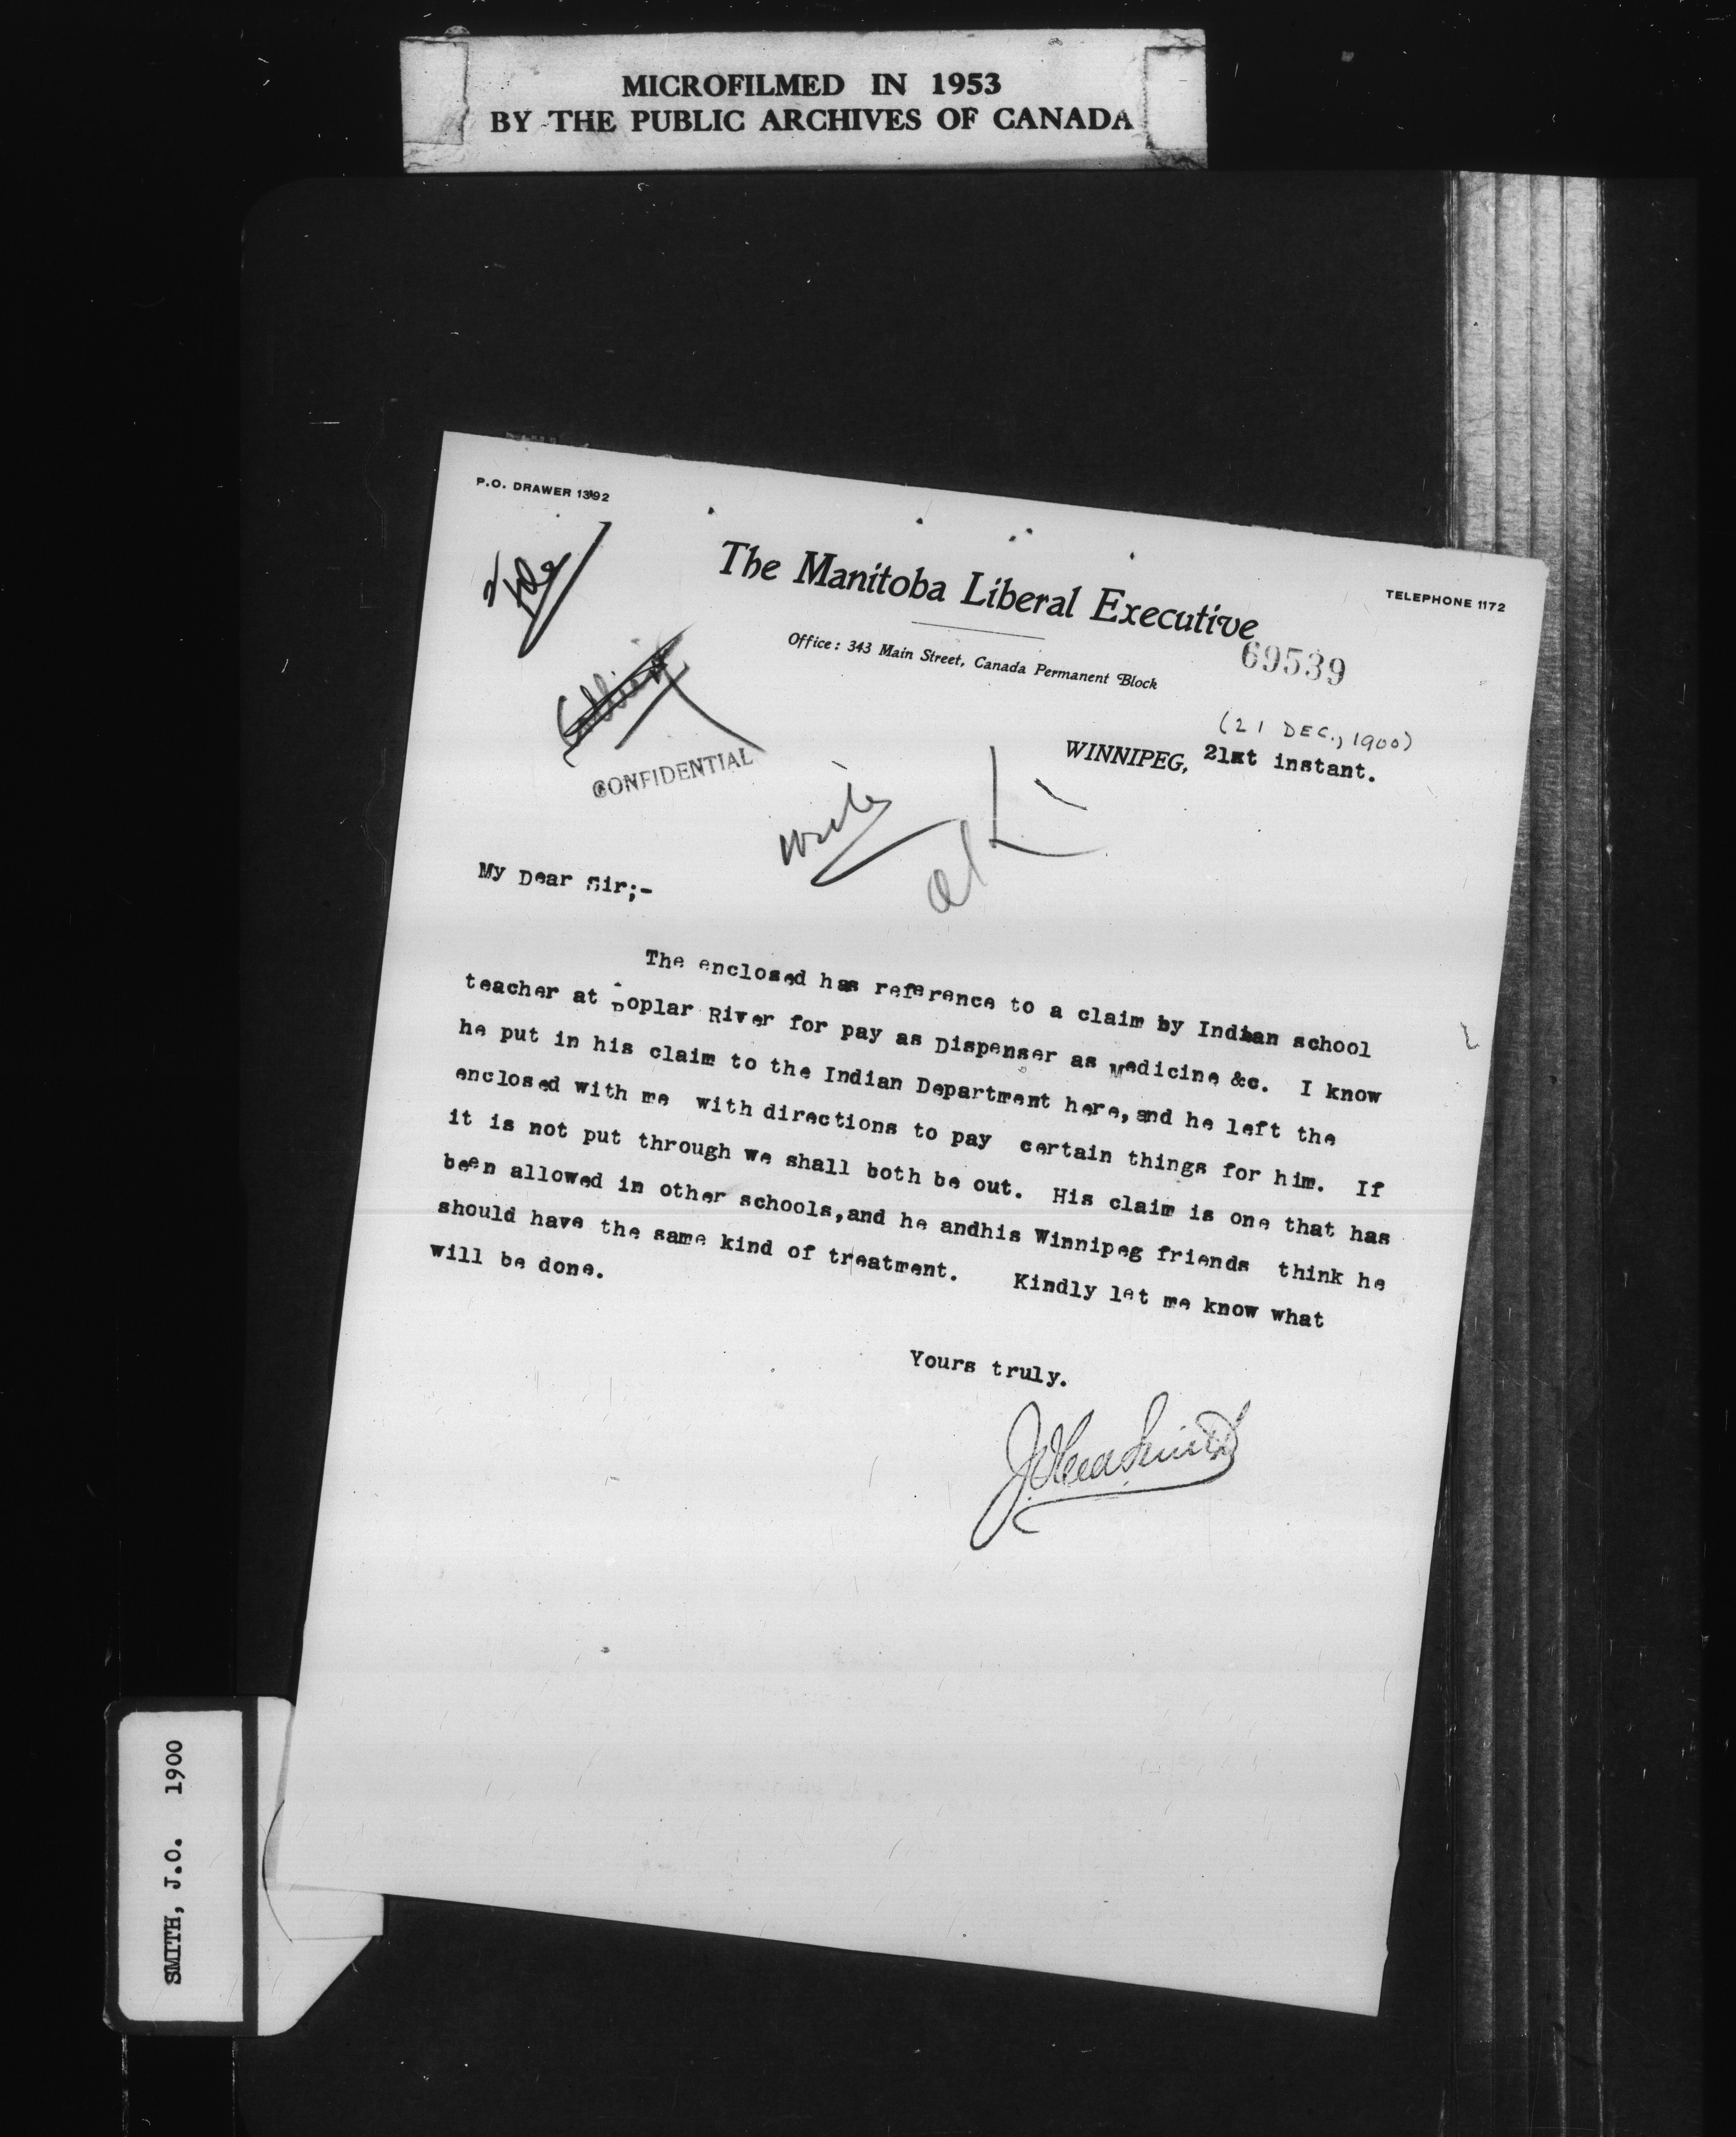 MICROFILMED IN 1953
BY THE PUBLIC ARCHIVES OF CANADA
P.O. DRAWER 1392
The Manitoba Liberal Executive
TELEPHONE 1172
Office: 343 Main Street, Canada Permanent Block
69539
(21 DEC., 1900)
WINNIPEG, 21st instant.
CONFIDENTIAL
write
My Dear Sir;-
The enclosed has reference to a claim by Indian school
teacher at Poplar River for pay as Dispenser as Medicine &c. I know
he put in his claim to the Indian Department here,and he left the
enclosed with me with directions to pay certain things for him. If
it is not put through we shall both be out. His claim is one that has
been allowed in other schools,and he andhis Winnipeg friends think he
should have the same kind of treatment. Kindly let me know what
will be done.
Yours truly.
J. Obed Smith
SMITH, J.O. 1900